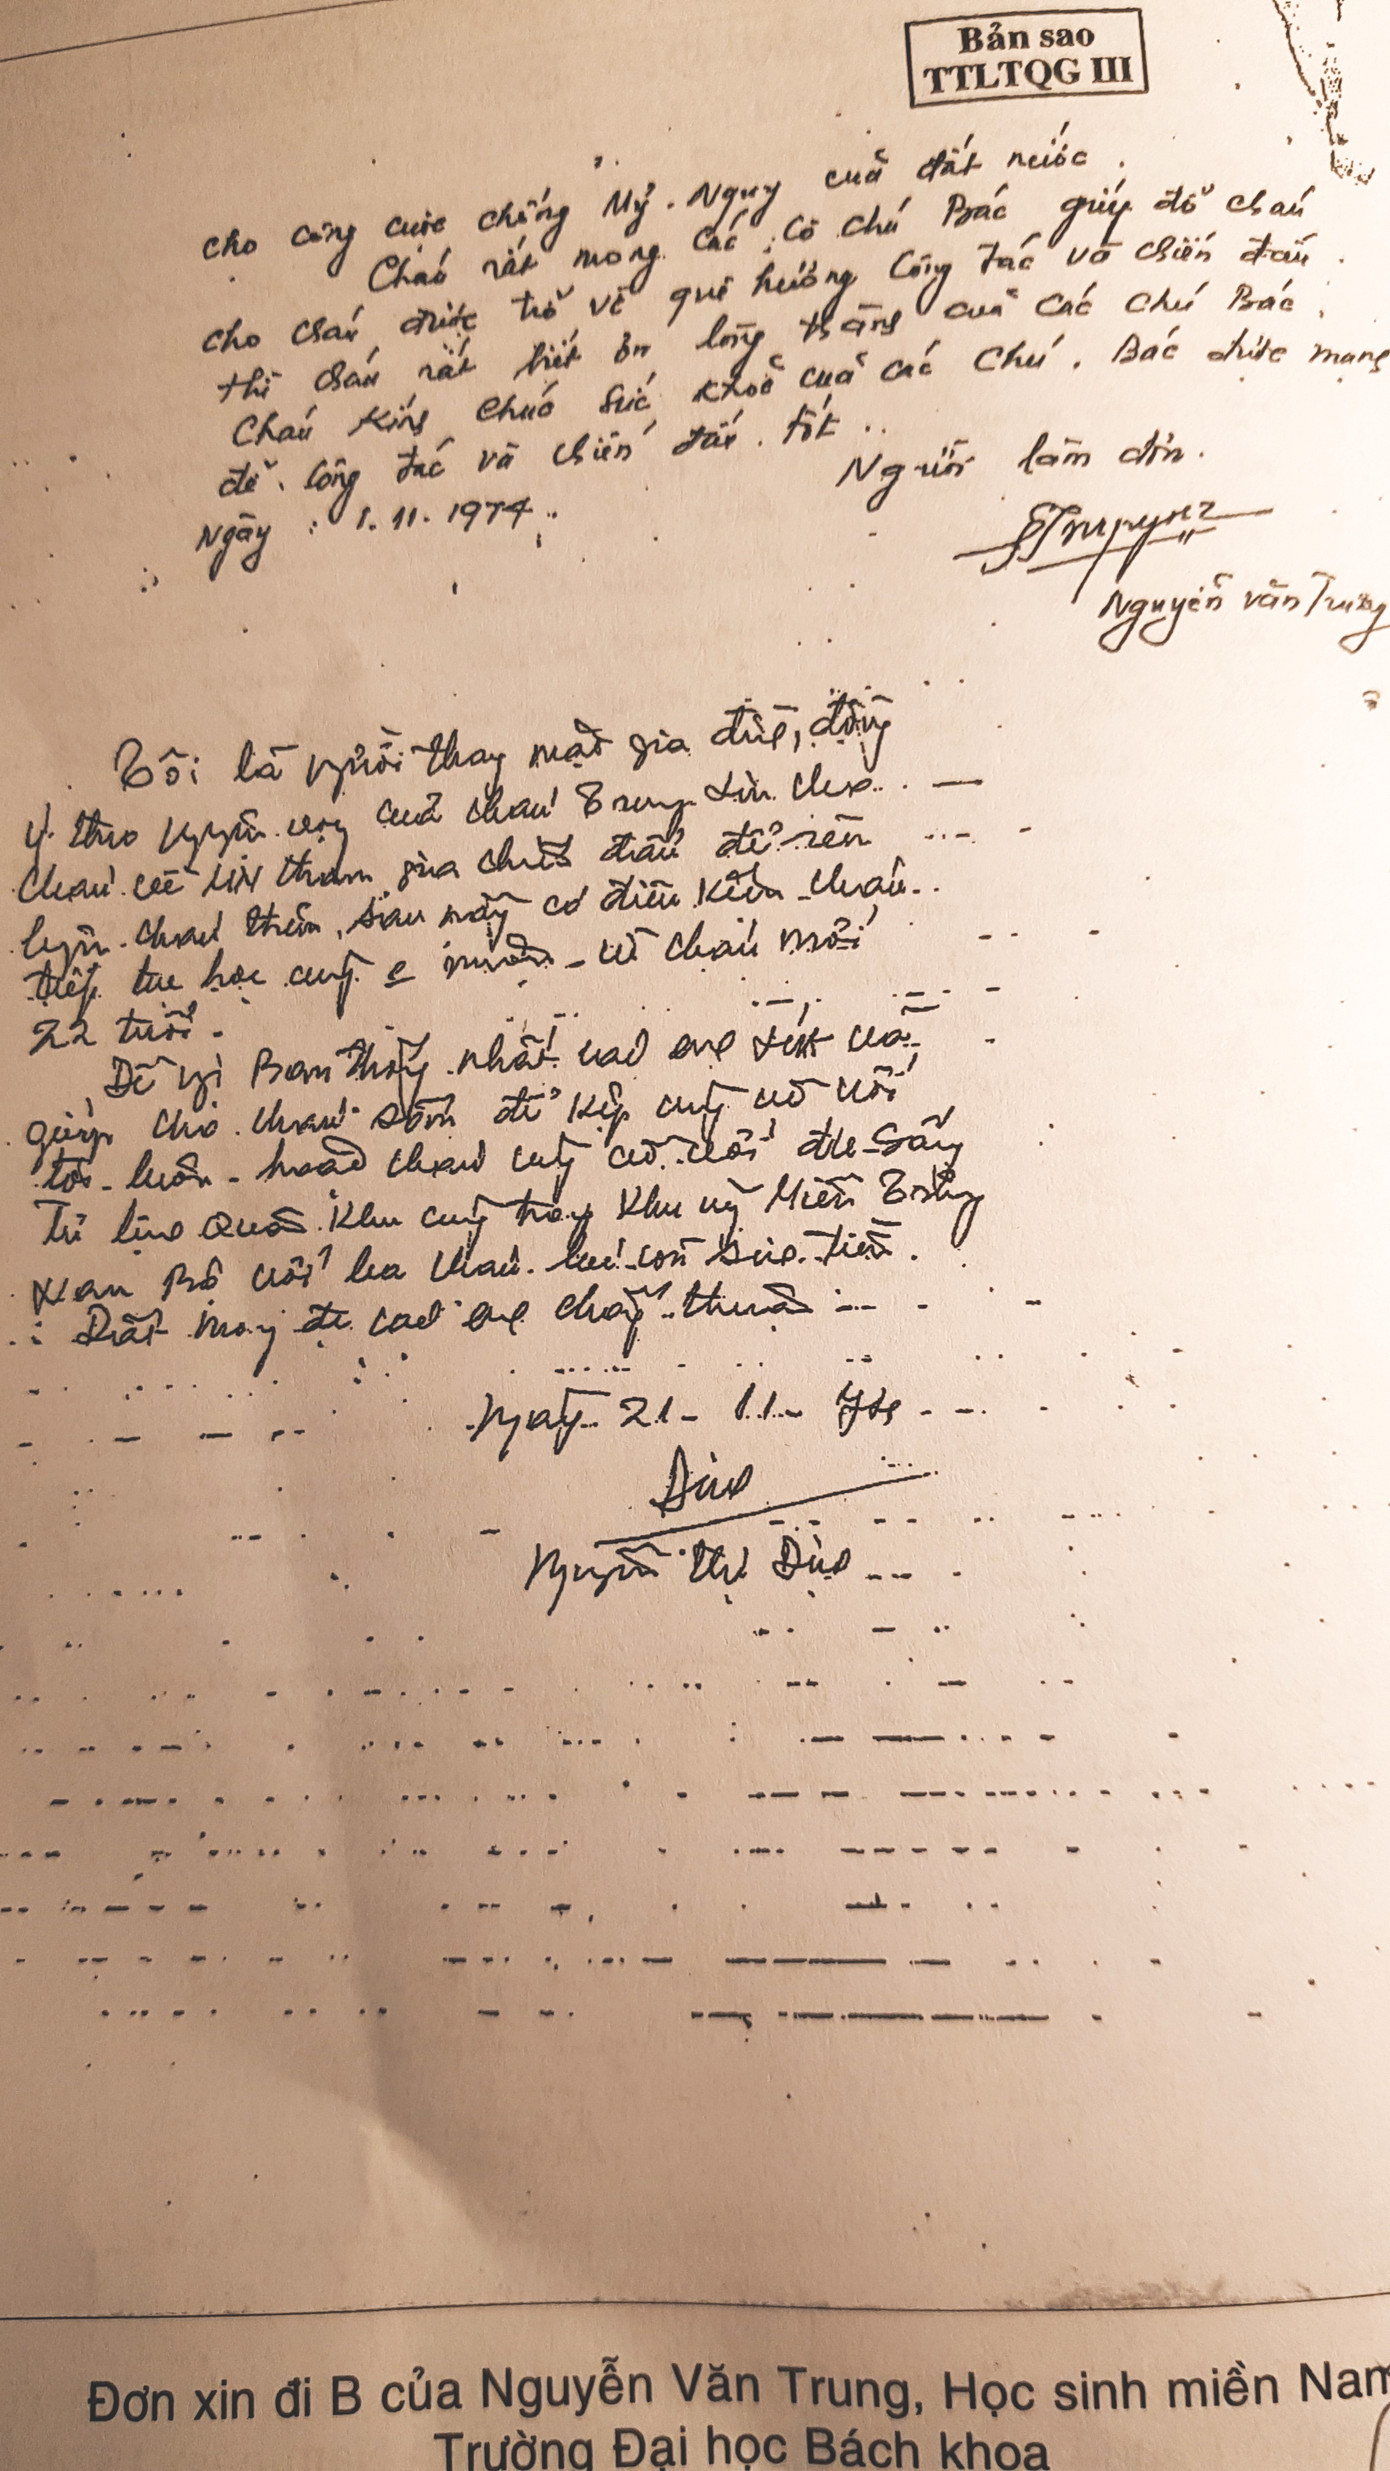 Bản sao
TTLTQG III
cho công cuộc chống Mỹ. Ngụy của đất nước.
Cháu rất mong các, cô chú Bác giúp đỡ cháu
cho cháu được trở về quê hương công tác và chiến đấu.
thì cháu rất biết ơn lòng thành của các chú Bác.
Cháu kính chúc sức khoẻ của các chú, Bác được mạng
để công tác và chiến đấu tốt..
Người làm đơn.
Ngày: 1.11.1974.
Nguyễn văn Trung
Tôi là người thay mặt gia đình, đồng
ý theo nguyện vọng của cháu Trung xin cho
cháu về MN tham gia chiến đấu để rèn
luyện cháu thêm, sau này có điều kiện cháu
tiếp tục học cũng muộn - vì cháu mới
22 tuổi.
Đề nghị Ban thống nhất các anh xét và
giúp cho cháu sớm để kịp cùng về với
tôi luôn - hoặc cháu cùng về với
Tư lệnh Quân khu cùng trong khu uỷ Miền
Nam Bộ với ba cháu lúc còn sinh tiền.
Rất mong các anh chấp thuận
Ngày 21-11-74
Định
Nguyễn thị Định
Đơn xin đi B của Nguyễn Văn Trung, Học sinh miền Nam
Trường Đại học Bách khoa